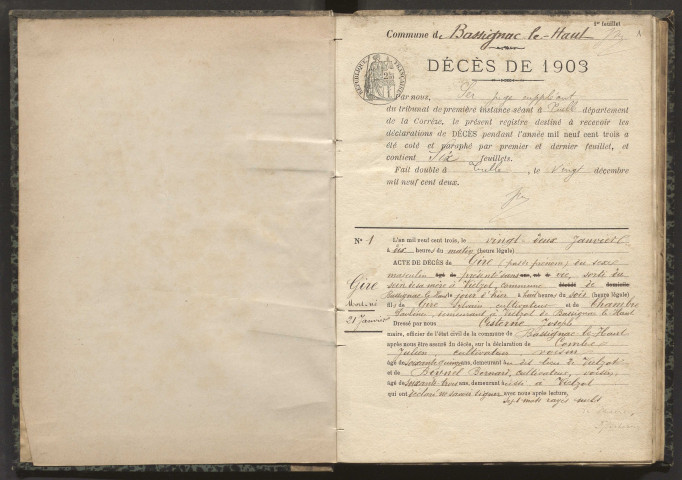 1er feuillet
Commune de Bassignac-le-Haut
DÉCÈS DE 1903
RÉPUBLIQUE FRANÇAISE
Par nous, juge suppléant
du tribunal de première instance séant à Tulle département
de la Corrèze, le présent registre destiné à recevoir les
déclarations de DÉCÈS pendant l'année mil neuf cent trois a
été coté et paraphé par premier et dernier feuillet, et
contient Six feuillets.
Fait double à Tulle, le vingt décembre
mil neuf cent deux.
N° 1
Gire
Mort-né
21 Janvier
L'an mil neuf cent trois, le vingt-deux Janvier
à dix heures du matin (heure légale)
ACTE DE DÉCÈS de Gire (pas de prénom) du sexe
masculin présenté sans vie, sorti du
sein de sa mère à Vielzot, commune de
Bassignac le Haut jour d'hier à heures du soir (heure légale)
fils de Gire Sylvain cultivateur et de Chambre
Pauline, demeurant à Vielzot de Bassignac le Haut
Dressé par nous Cisterne Joseph
maire, officier de l'état civil de la commune de Bassignac le Haut
après nous être assuré du décès, sur la déclaration de Combes
Julien, cultivateur voisin
âgé de soixante ans, demeurant au dit lieu de Vielzot
et de Bernard, cultivateur, voisin
âgé de soixante trois ans, demeurant aussi à Vielzot
qui ont déclaré ne savoir signer avec nous après lecture,
Sept mots rayés nuls